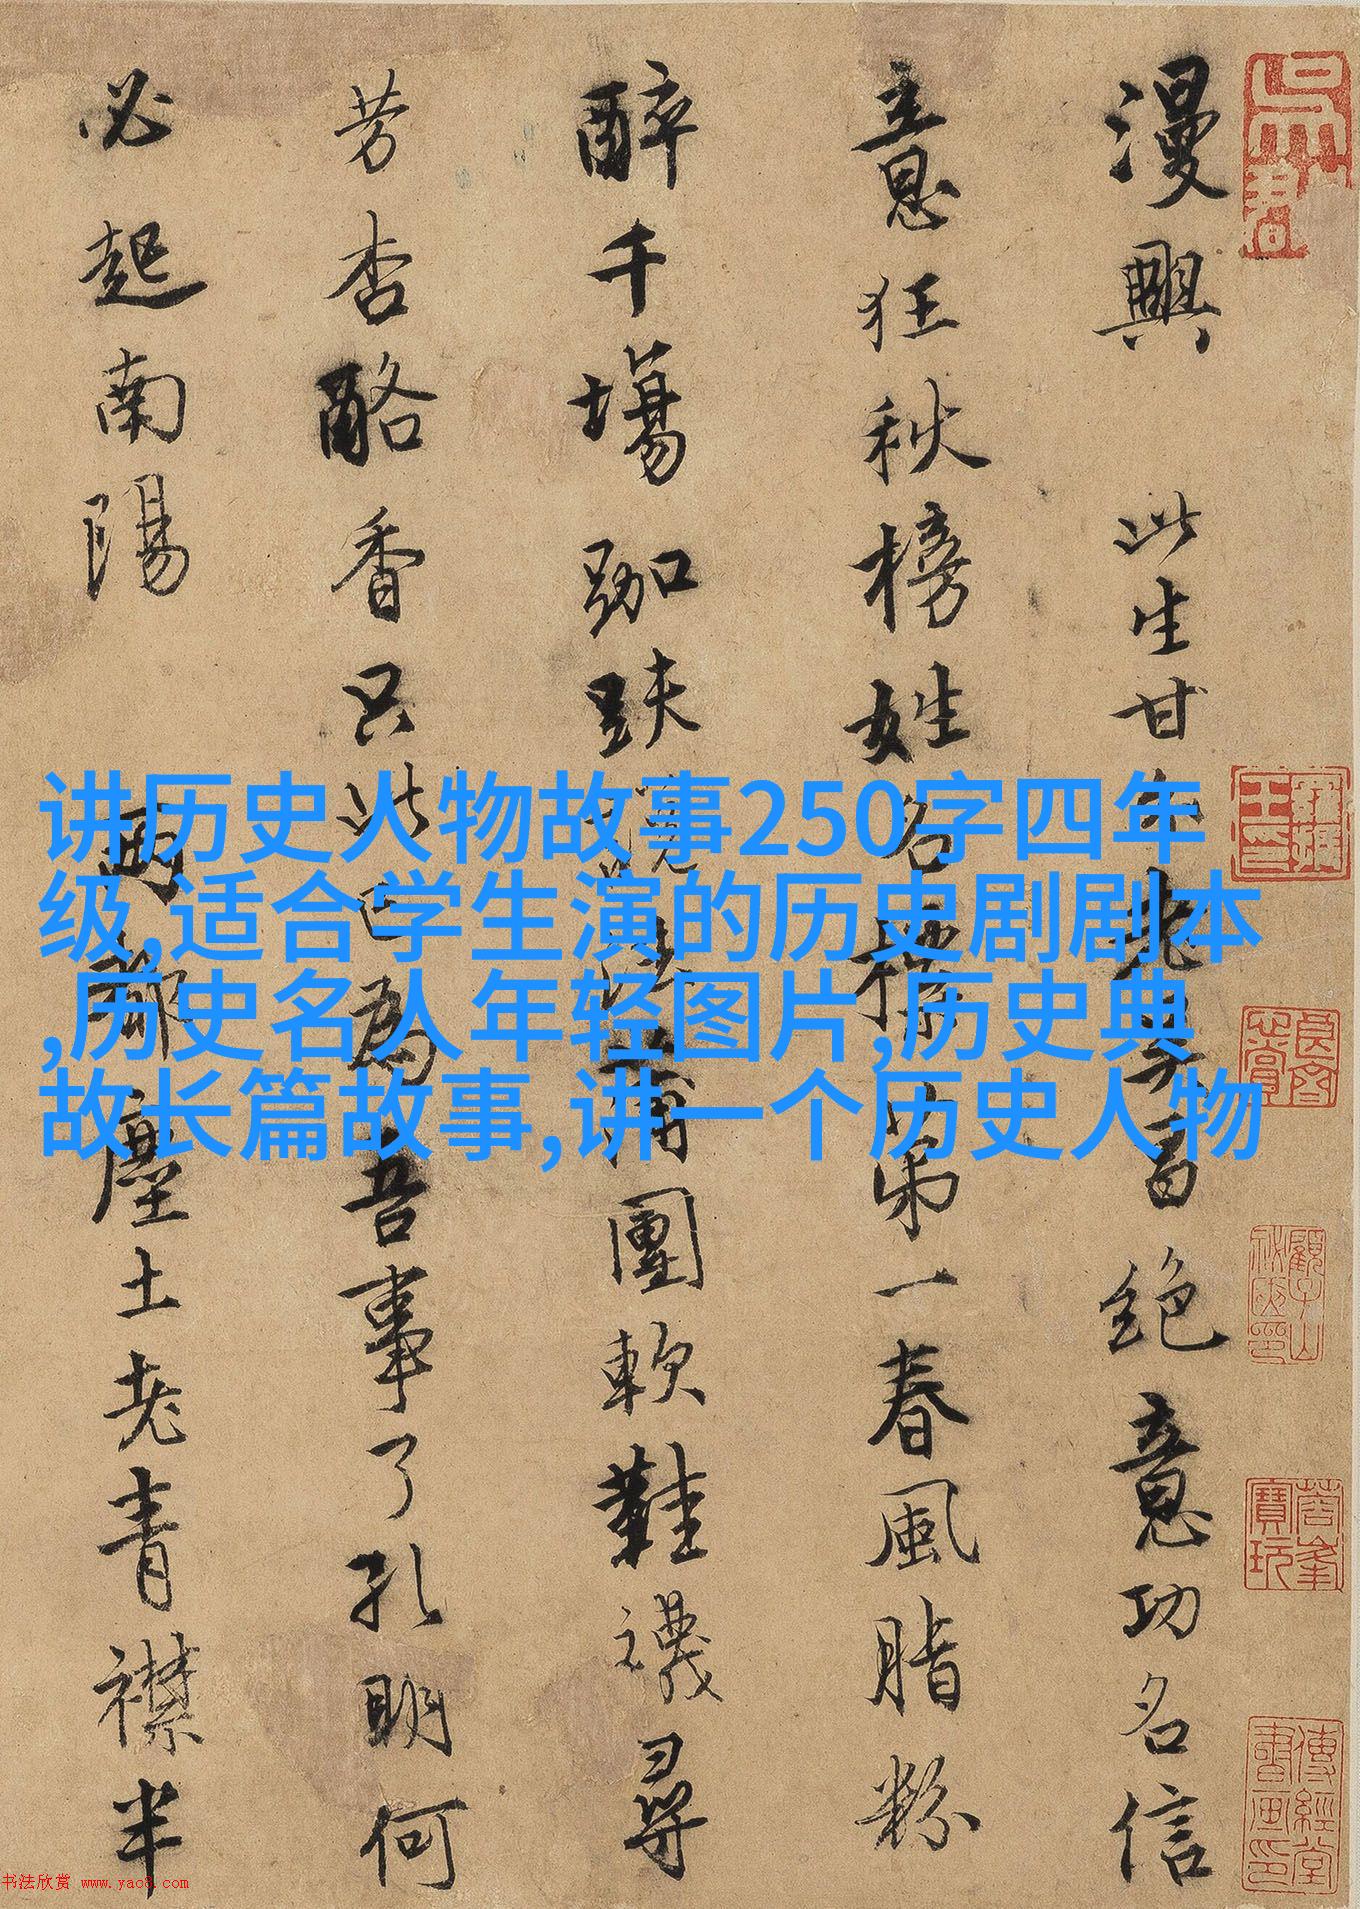 讲历史人物故事250字四年
级,适合学生演的历史剧剧本
,历史名人年轻图片,历史典
故长篇故事,讲一个历史人物
漫興 此生甘分老吳昌絕意功名信
意狂秋榜姓名標第一春風脂粉
醉千場跏趺說法蒲團軟鞋襪尋
芳杏酪香只此已為吾事了孔明何
必起南陽 兩都塵土老青襟半
蓉峯寶玩
書法欣赏 www.yac8.com